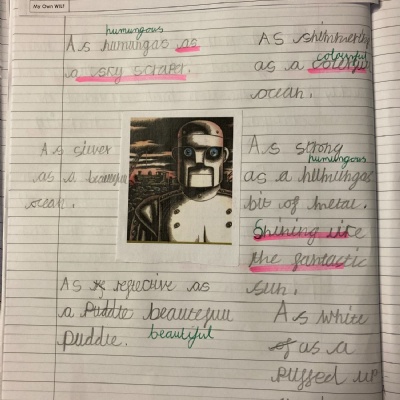 My Own WILT
humungous
As humungas as
a sky scraper.
As shimmering
colourful
as a
ocean.
As silver
as a
ocean.
As strong
humungous
as a humungas
bit of metal.
Shining like
the fantastic
sun.
As reflective as
a puddle beautefull
puddle.
beautiful
As white
of as a
puffed up